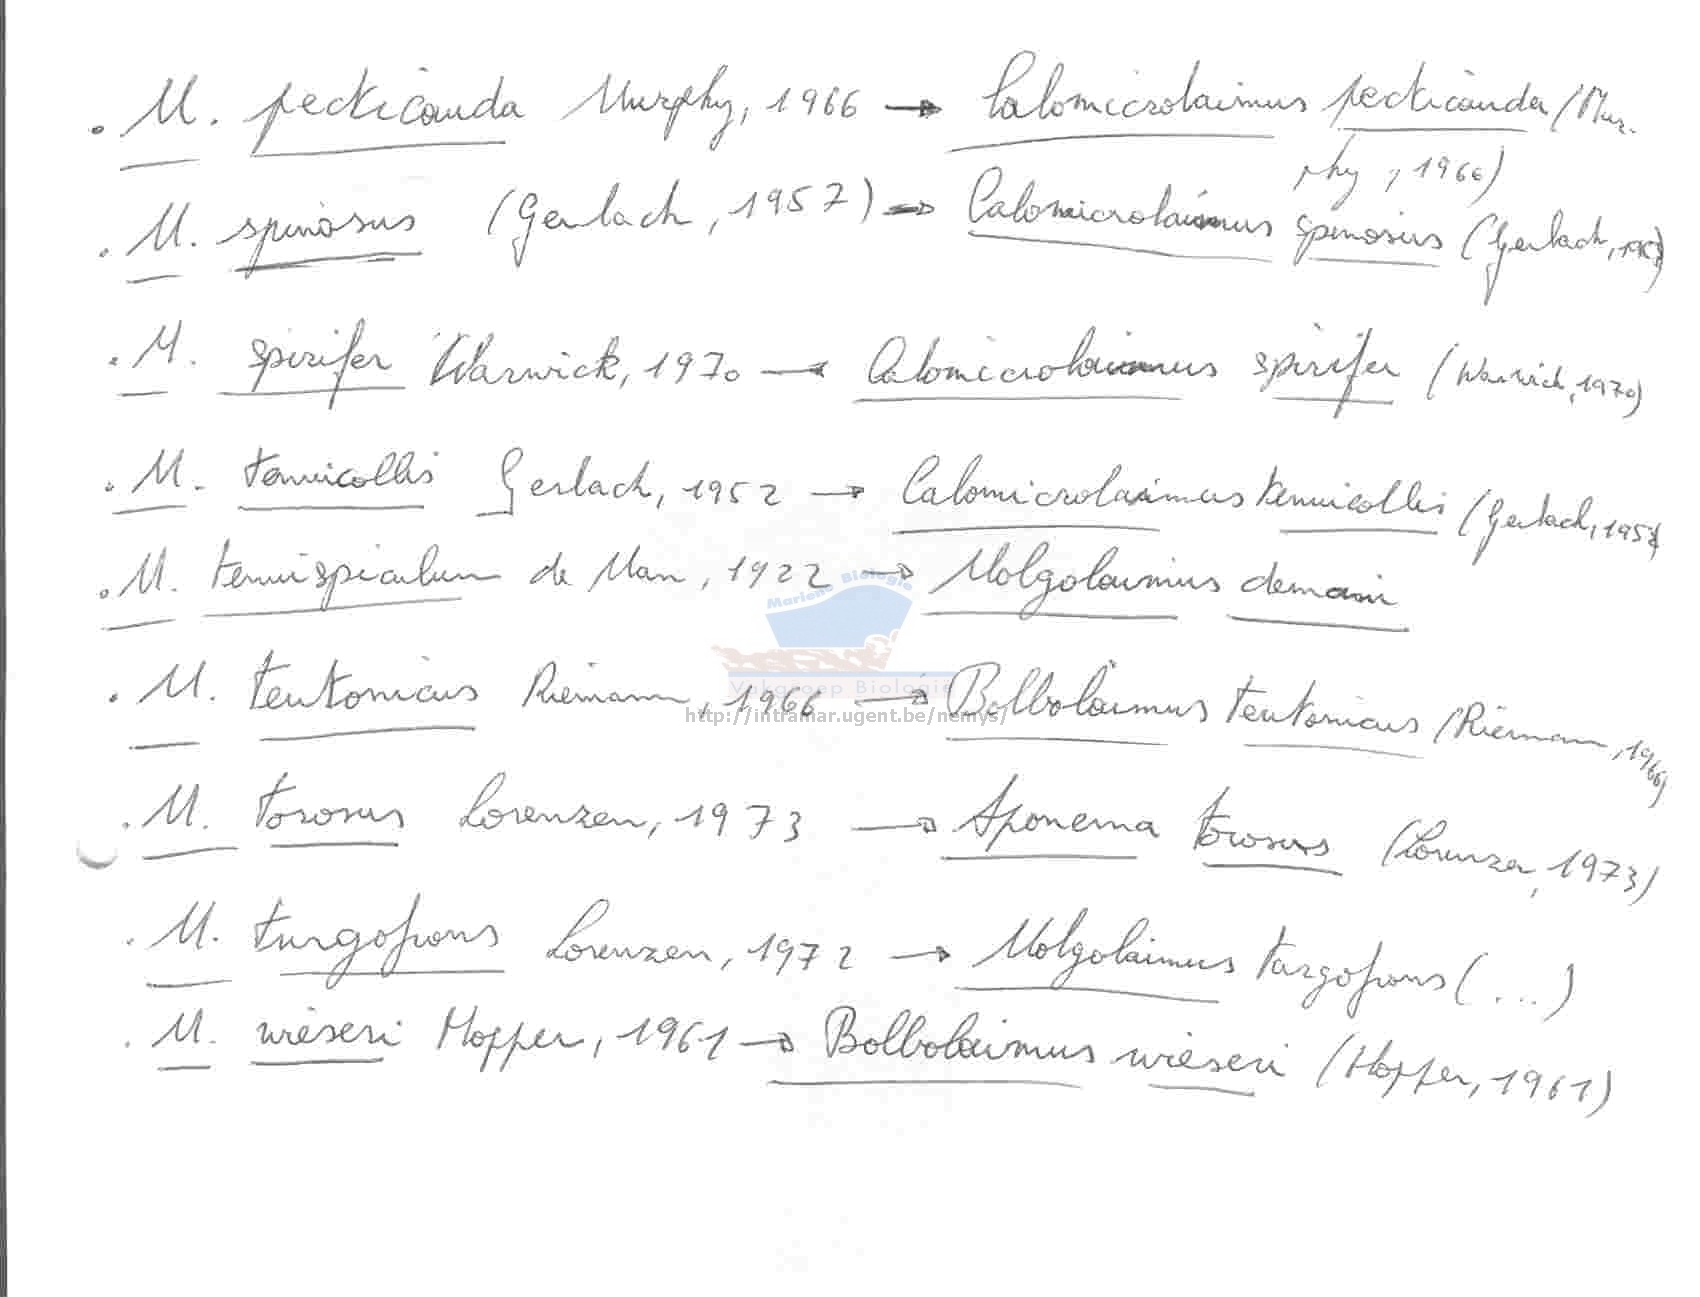 . M. pecticauda Murphy, 1966 → Calomicrolaimus pecticauda (Mur-
phy, 1966)
. M. spinosus (Gerlach, 1957) → Calomicrolaimus spinosus (Gerlach, 1957)
. M. spirifer Warwick, 1970 → Calomicrolaimus spirifer (Warwick, 1970)
. M. tenuicollis Gerlach, 1952 → Calomicrolaimus tenuicollis (Gerlach, 1952)
. M. tenuispiculum de Man, 1922 → Molgolaimus demani
Mariene Biologie
. M. teutonicus Riemann, 1966 → Bolbolaimus teutonicus (Riemann, 1966)
Vakgroep Biologie
http://intramar.ugent.be/nemys/
. M. torosus Lorenzen, 1973 → Aponema torosus (Lorenzen, 1973)
. M. turgofrons Lorenzen, 1972 → Molgolaimus turgofrons (...)
. M. wieseri Hopper, 1961 → Bolbolaimus wieseri (Hopper, 1961)